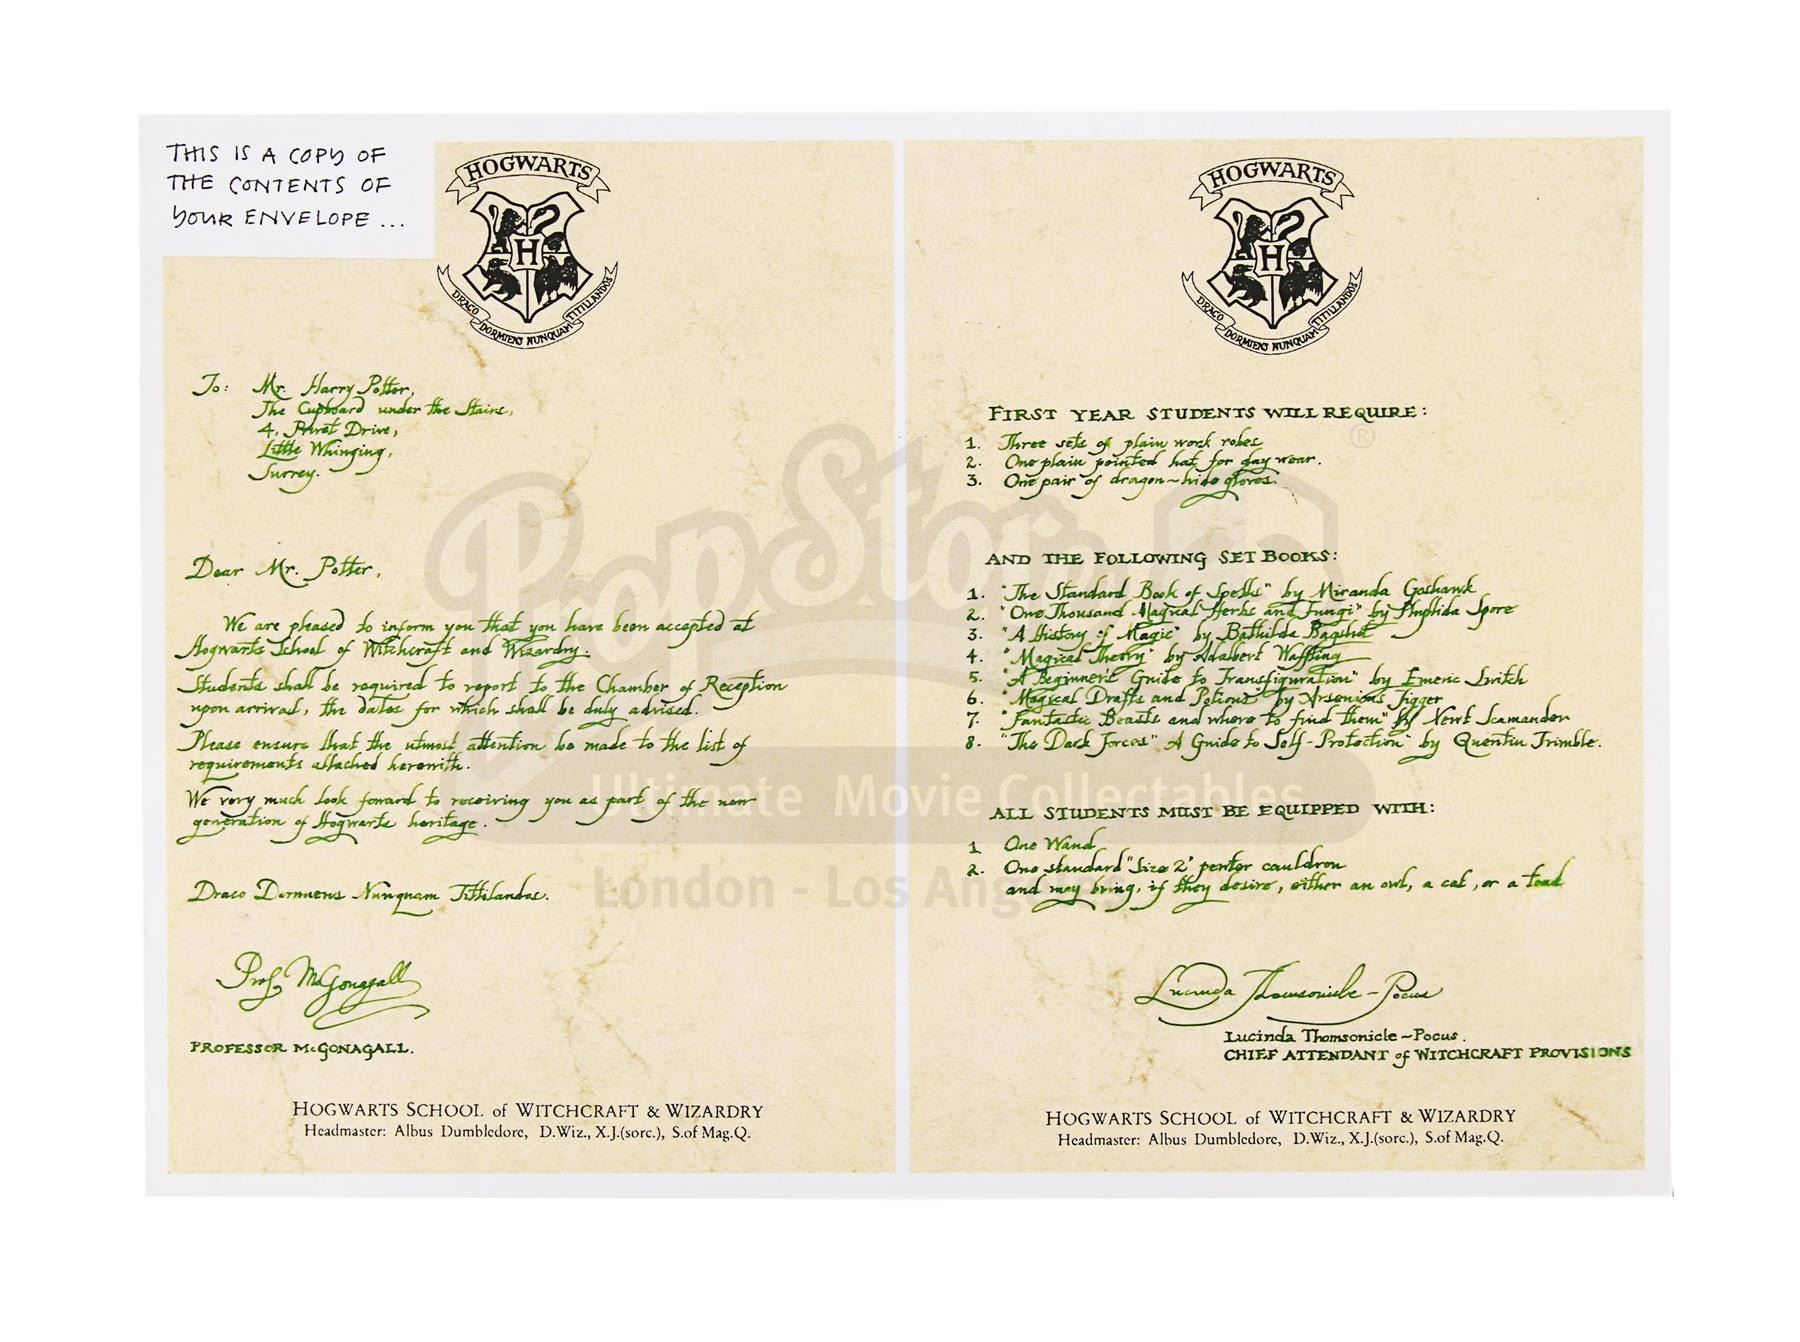 THIS IS A COPY OF
THE CONTENTS OF
YOUR ENVELOPE ...
HOGWARTS
H
DRACO DORMIENS NUNQUAM TITILLANDUS
To: Mr. Harry Potter,
The Cupboard under the Stairs,
4, Privet Drive,
Little Whinging,
Surrey.
Dear Mr. Potter,
We are pleased to inform you that you have been accepted at
Hogwarts School of Witchcraft and Wizardry.
Students shall be required to report to the Chamber of Reception
upon arrival, the dates for which shall be duly advised.
Please ensure that the utmost attention be made to the list of
requirements attached herewith.
We very much look forward to receiving you as part of the new
generation of Hogwarts heritage.
Draco Dormiens Nunquam Tittilandus.
Prof McGonagall
PROFESSOR McGONAGALL.
HOGWARTS SCHOOL of WITCHCRAFT & WIZARDRY
Headmaster: Albus Dumbledore, D.Wiz., X.J.(sorc.), S.of Mag.Q.
HOGWARTS
H
DRACO DORMIENS NUNQUAM TITILLANDUS
FIRST YEAR STUDENTS WILL REQUIRE:
1. Three sets of plain work robes
2. One plain pointed hat for day wear.
3. One pair of dragon~hide gloves.
AND THE FOLLOWING SET BOOKS:
1. "The Standard Book of Spells" by Miranda Goshawk
2. "One Thousand Magical Herbs and Fungi" by Phyllida Spore
3. "A History of Magic" by Bathilda Bagshot
4. "Magical Theory" by Adalbert Waffling
5. "A Beginner's Guide to Transfiguration" by Emeric Switch
6. "Magical Drafts and Potions" by Arsenius Jigger
7. "Fantastic Beasts and where to find them" by Newt Scamander
8. "The Dark Forces" A Guide to Self-Protection" by Quentin Trimble.
ALL STUDENTS MUST BE EQUIPPED WITH:
1 One Wand
2. One standard "Size 2" pewter cauldron
and may bring, if they desire, either an owl, a cat, or a toad
Lucinda Thomsonicle-Pocus
Lucinda Thomsonicle~Pocus.
CHIEF ATTENDANT of WITCHCRAFT PROVISIONS
HOGWARTS SCHOOL of WITCHCRAFT & WIZARDRY
Headmaster: Albus Dumbledore, D.Wiz., X.J.(sorc.), S.of Mag.Q.
PopStor ®
Ultimate Movie Collectables
London - Los Angeles